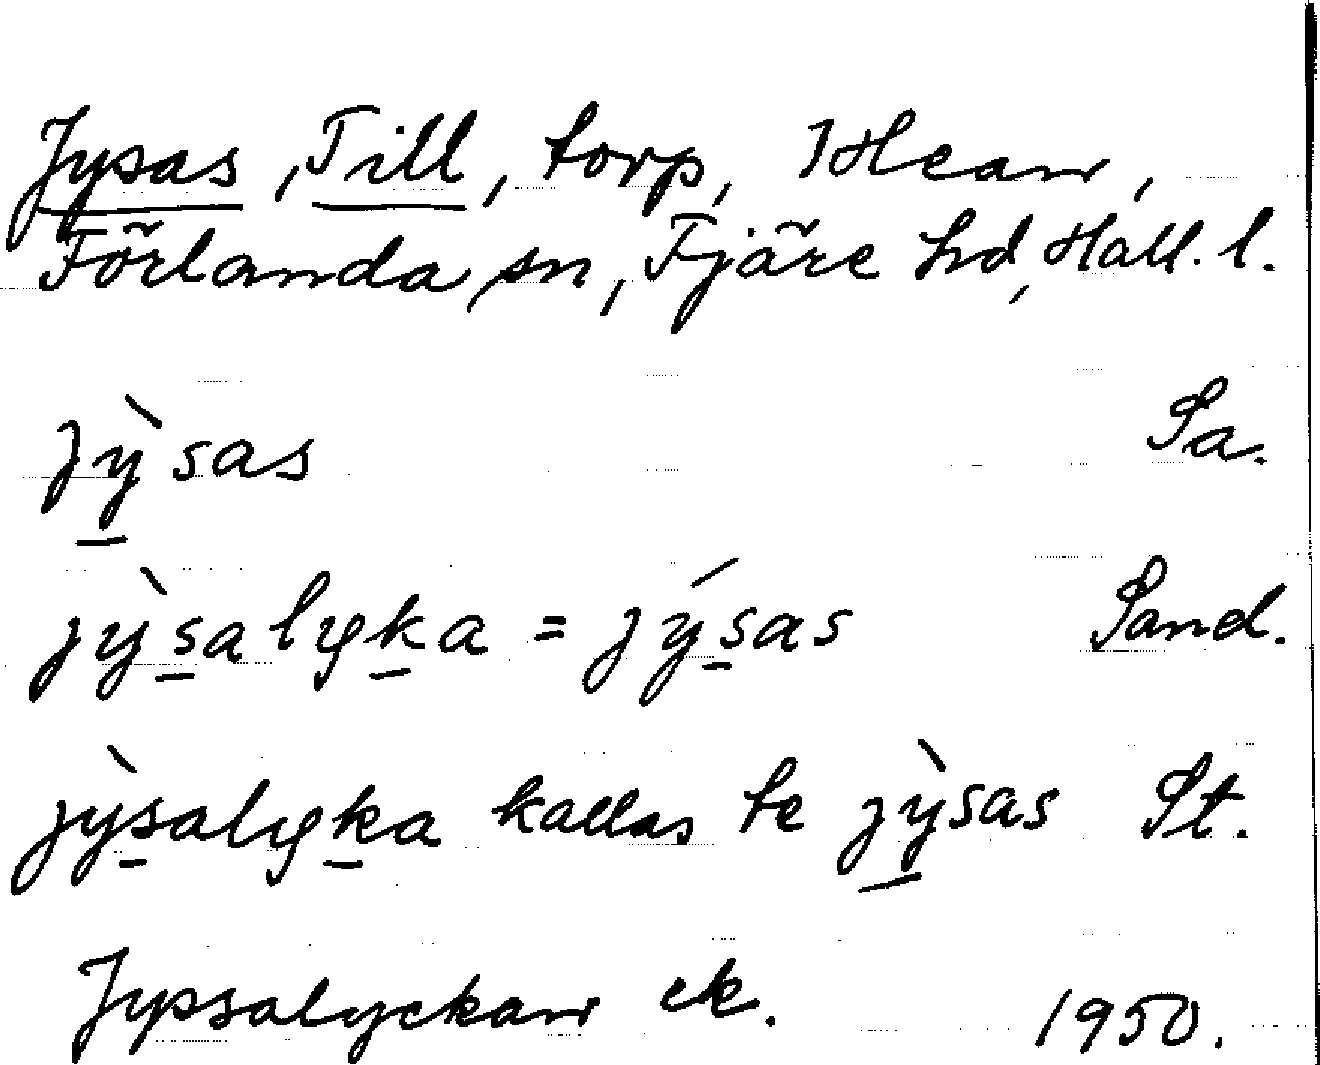 Jysas, Till, torp, Hean,
Förlanda sn, Fjäre hd, Hall. l.
jỳsas Sa.
jỳsalyka = jýsas Sand.
jỳsalyka kallas te jỳsas St.
Jypsalyckan ek. 1950.